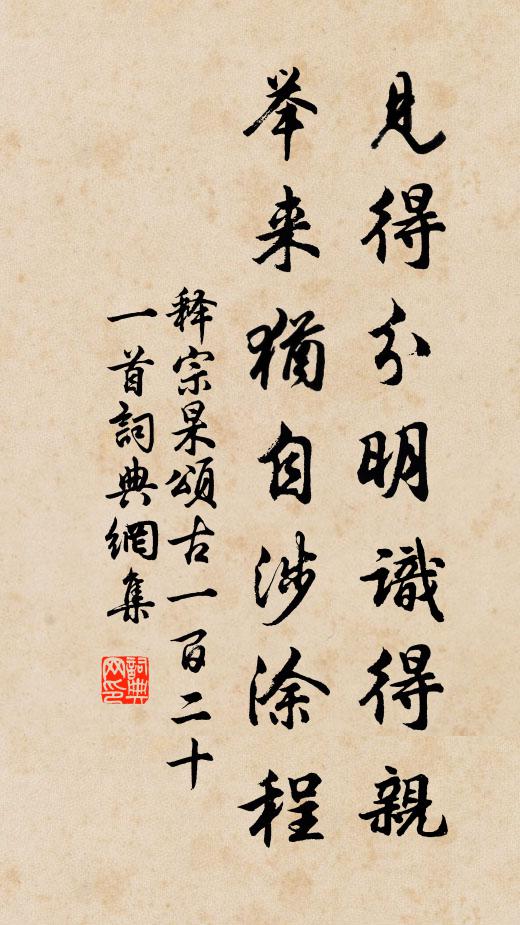 見得分明識得親
举来猶自涉涂程
释宗杲頌古一百二十
一首詞典網集
詞典
网印